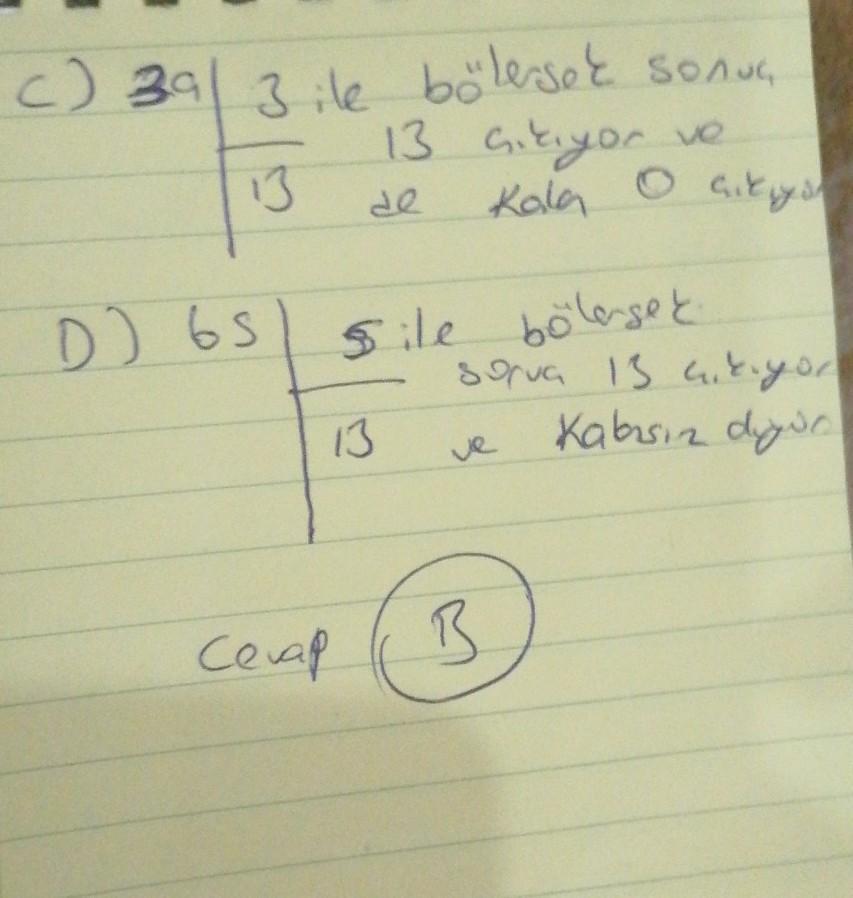 C) 39 | 3 ile bölersek sonuç
13 13 çıkıyor ve
de Kalan 0 çıkıyor
D) 65 | 5 ile bölersek
sonuç 13 çıkıyor
13 ve Kalansız
Cevap B